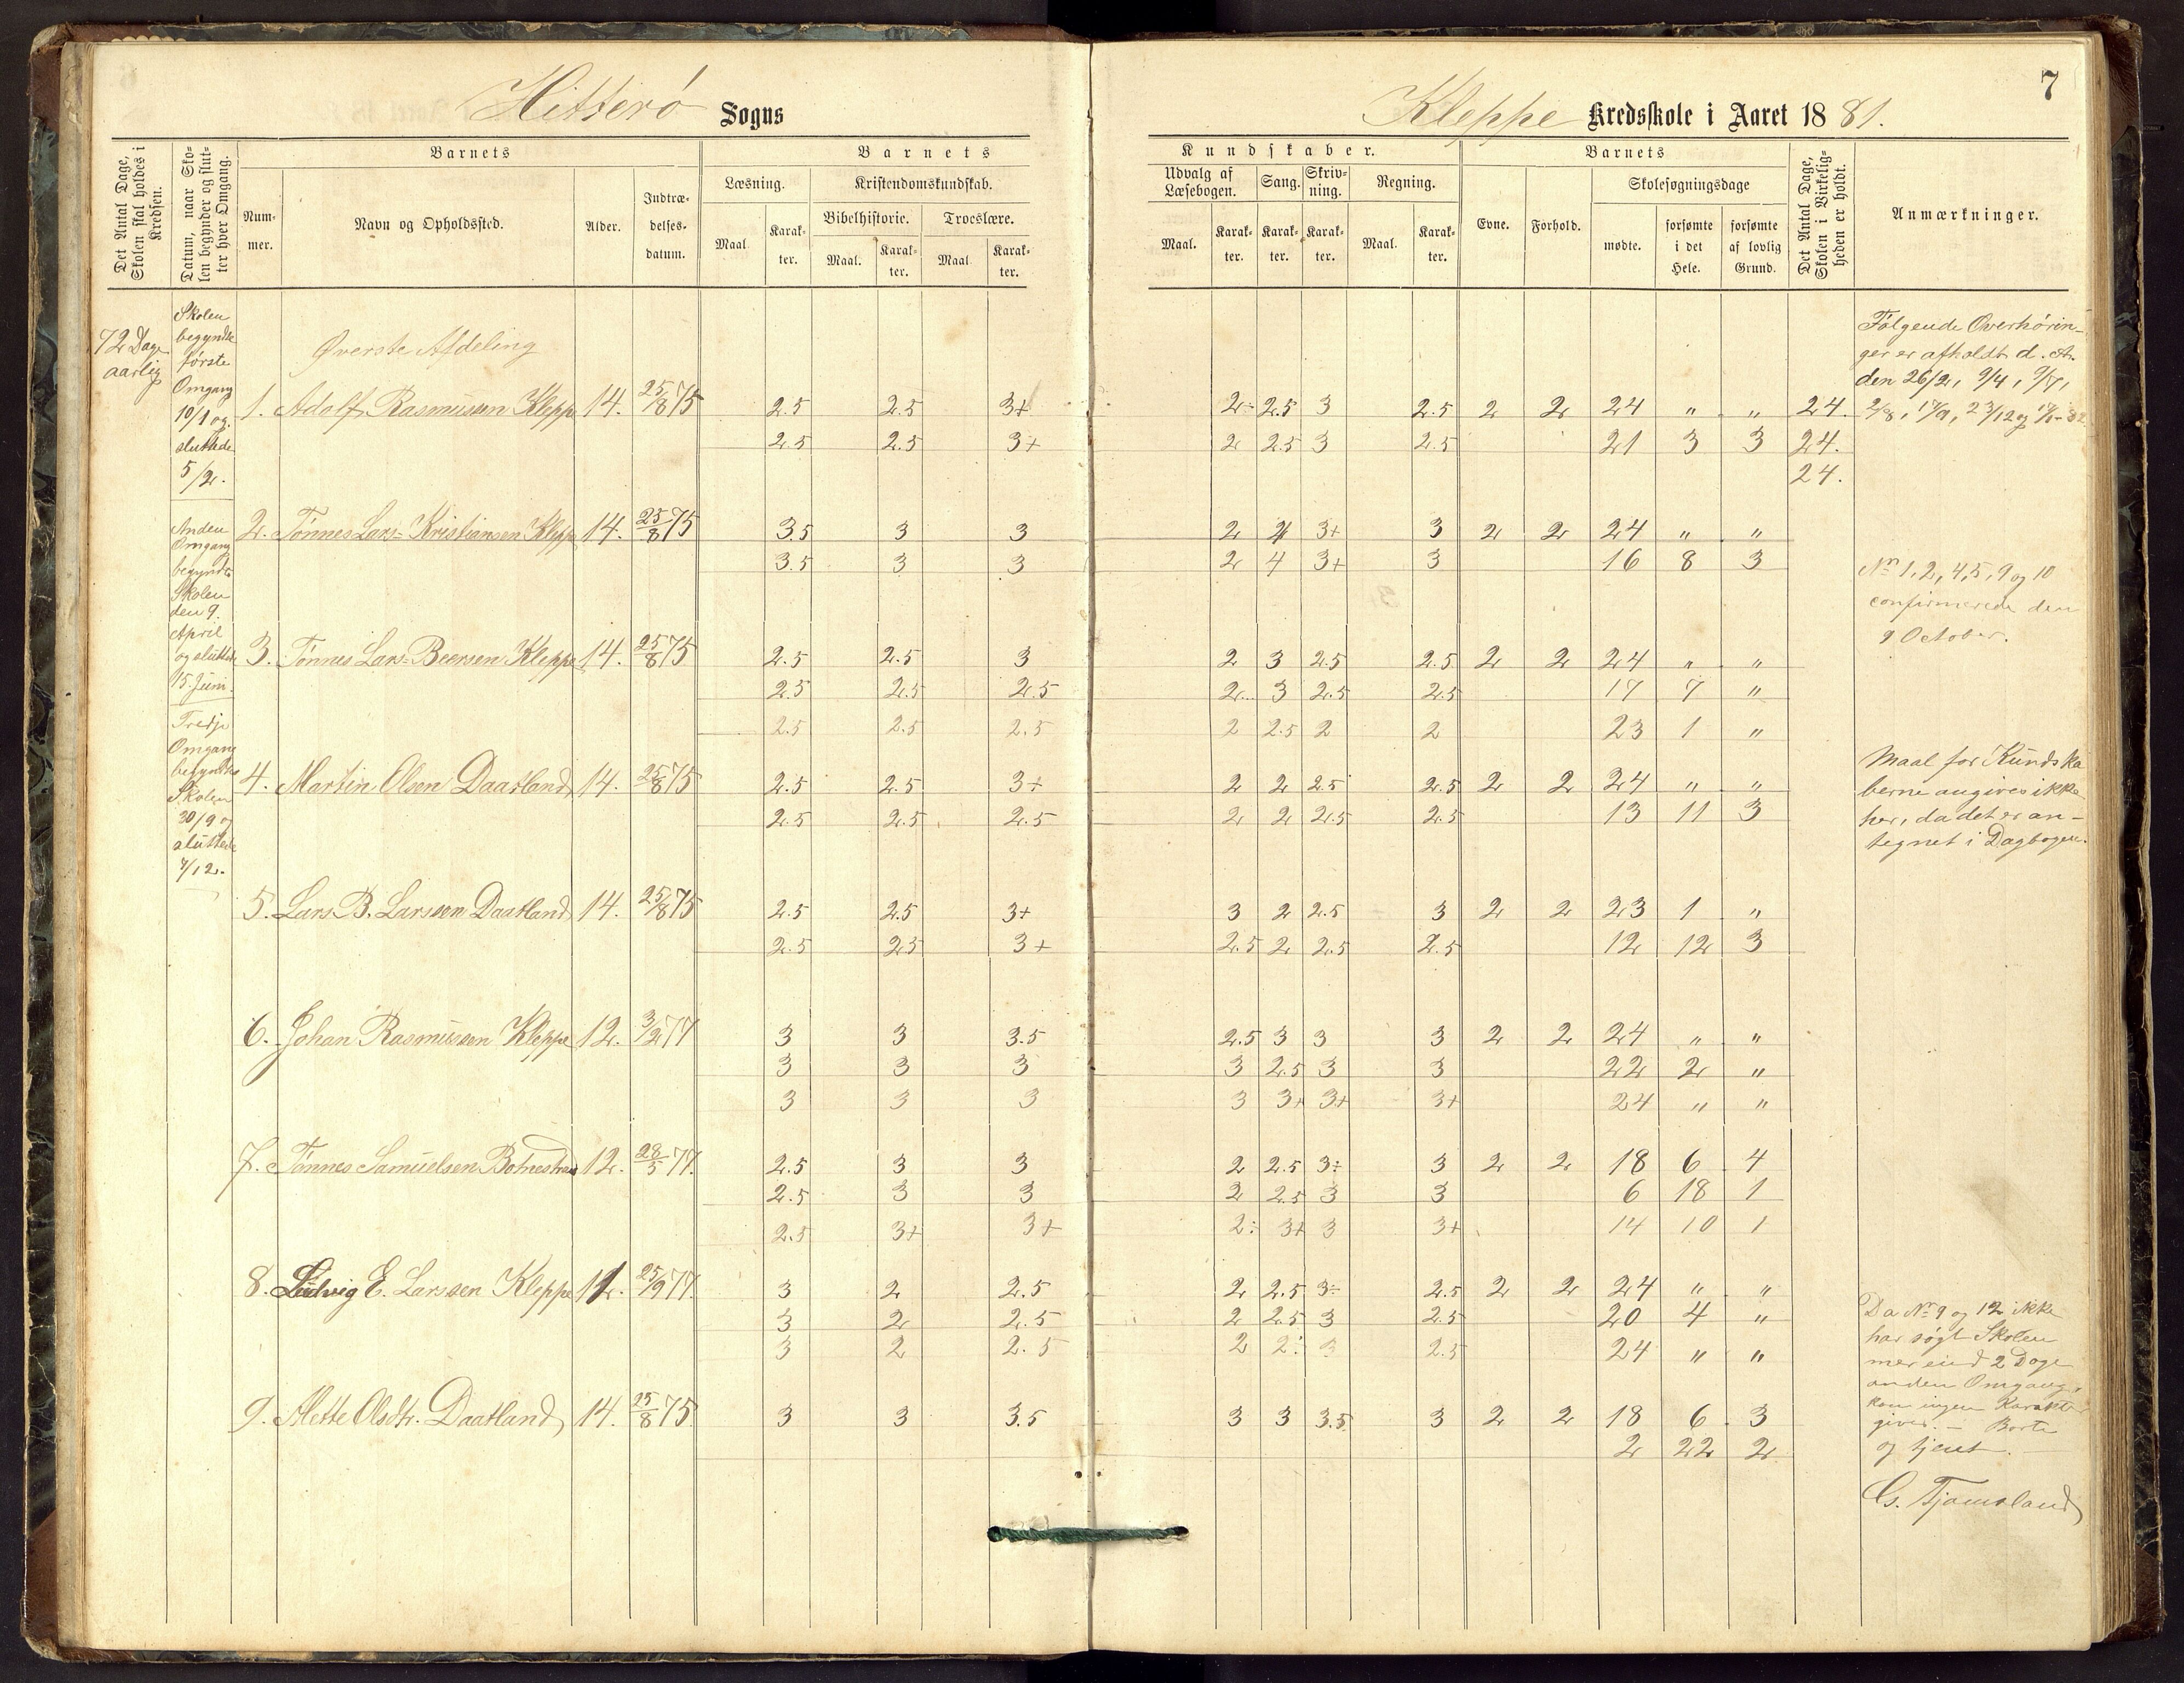 7
Hitterö Sogns
Kleppe Kredsskole i Aaret 1881.
Det Antal Dage, Skolen skal holdes i Kredsen.
Datum, naar Skolen begynder og slutter hver Omgang.
Barnets
Nummer.
Navn og Opholdssted.
Alder.
Indtrædelsesdatum.
Barnets
Læsning.
Maal.
Karakter.
Kristendomskundskab.
Bibelhistorie.
Maal.
Karakter.
Troeslære.
Maal.
Karakter.
Kundskaber.
Udvalg af Læsebogen.
Maal.
Karakter.
Sang.
Karakter.
Skrivning.
Karakter.
Regning.
Maal.
Karakter.
Barnets
Evne.
Forhold.
Skolesøgningsdage
mødte.
forsømte i det Hele.
forsømte af lovlig Grund.
Det Antal Dage, Skolen i Virkeligheden er holdt.
Anmærkninger.
72 Dage
aarlig
Skolen
begyndte
første
Omgang
10/1 og
sluttede
5/2.
Anden
Omgang
begyndte
Skolen
den 9.
April
og sluttede
15. Juni.
Tredje
Omgang
begyndte
Skolen
30/9 og
sluttede
7/12.
Øverste Afdeling
1. Adolf Rasmussen Klepp 14. 25/8 75 2.5 2.5 3+ 2÷ 2.5 3 2.5 2 2 24 " " 24.
2.5 2.5 3+ 2 2.5 3 2.5 21 3 3 24.
24.
2. Tønnes Lars-Kristiansen Klepp 14. 25/8 75 3.5 3 3 2 4 3+ 3 2 2 24 " "
3.5 3 3 2 4 3+ 3 16 8 3
3. Tønnes Lars-Beersen Kleppe 14. 25/8 75 2.5 2.5 3 2 3 2.5 2.5 2 2 24 " "
2.5 2.5 2.5 2 3 2.5 2.5 17 7 "
2.5 2.5 2.5 2 2.5 2 2 23 1 "
4. Martin Olsen Daatland 14. 25/8 75 2.5 2.5 3+ 2 2 2.5 2.5 2 2 24 " "
2.5 2.5 2.5 2 2 2.5 2.5 13 11 3
5. Lars B. Larssen Daatland 14. 25/8 75 2.5 2.5 3+ 3 2 2.5 3 2 2 23 1 "
2.5 2.5 3+ 2.5 2 2.5 2.5 12 12 3
6. Johan Rasmussen Kleppe 12. 3/2 77 3 3 3.5 2.5 3 3 3 2 2 24 " "
3 3 3 3 2.5 3 3 22 2 "
3 3 3 3 3+ 3+ 3+ 24 " "
7. Tønnes Samuelsen 12. 28/5 77. 2.5 3 3 2 2.5 3÷ 3 2 2 18 6 4
2.5 3 3 2 2.5 3 3 6 18 1
2.5 3+ 3+ 2÷ 3+ 3 3+ 14 10 1
8. Ludvig E. Larssen Kleppe 25/9 77. 3 2 2.5 2 2.5 3÷ 2.5 2 2 24 " "
3 2 2.5 2 2.5 3 2.5 20 4 "
3 2 2.5 2 2÷ 3 2.5 24 " "
9. Mette Olsdtr. Daatland 14. 25/8 75. 3 3 3.5 3 3 3.5 3 2 2 18 6 3
2 22 2
Følgende Overhørin-
ger er afholdt d. A.
den 26/2, 9/4, 9/7,
2/8, 17/9, 23/12 og
No 1, 2, 4, 5, 9 og 10
confirmerede den
9 October.
Maal for Kundska
berne angives ikke
her, da det er an-
tegnet i Dagbogen.
Da No 9 og 12 ikke
har søgt Skolen
mer end 2 Dage
anden Omgang,
kan ingen Karakter
gives. - Borte
og tjent. -
G. Tjamsland